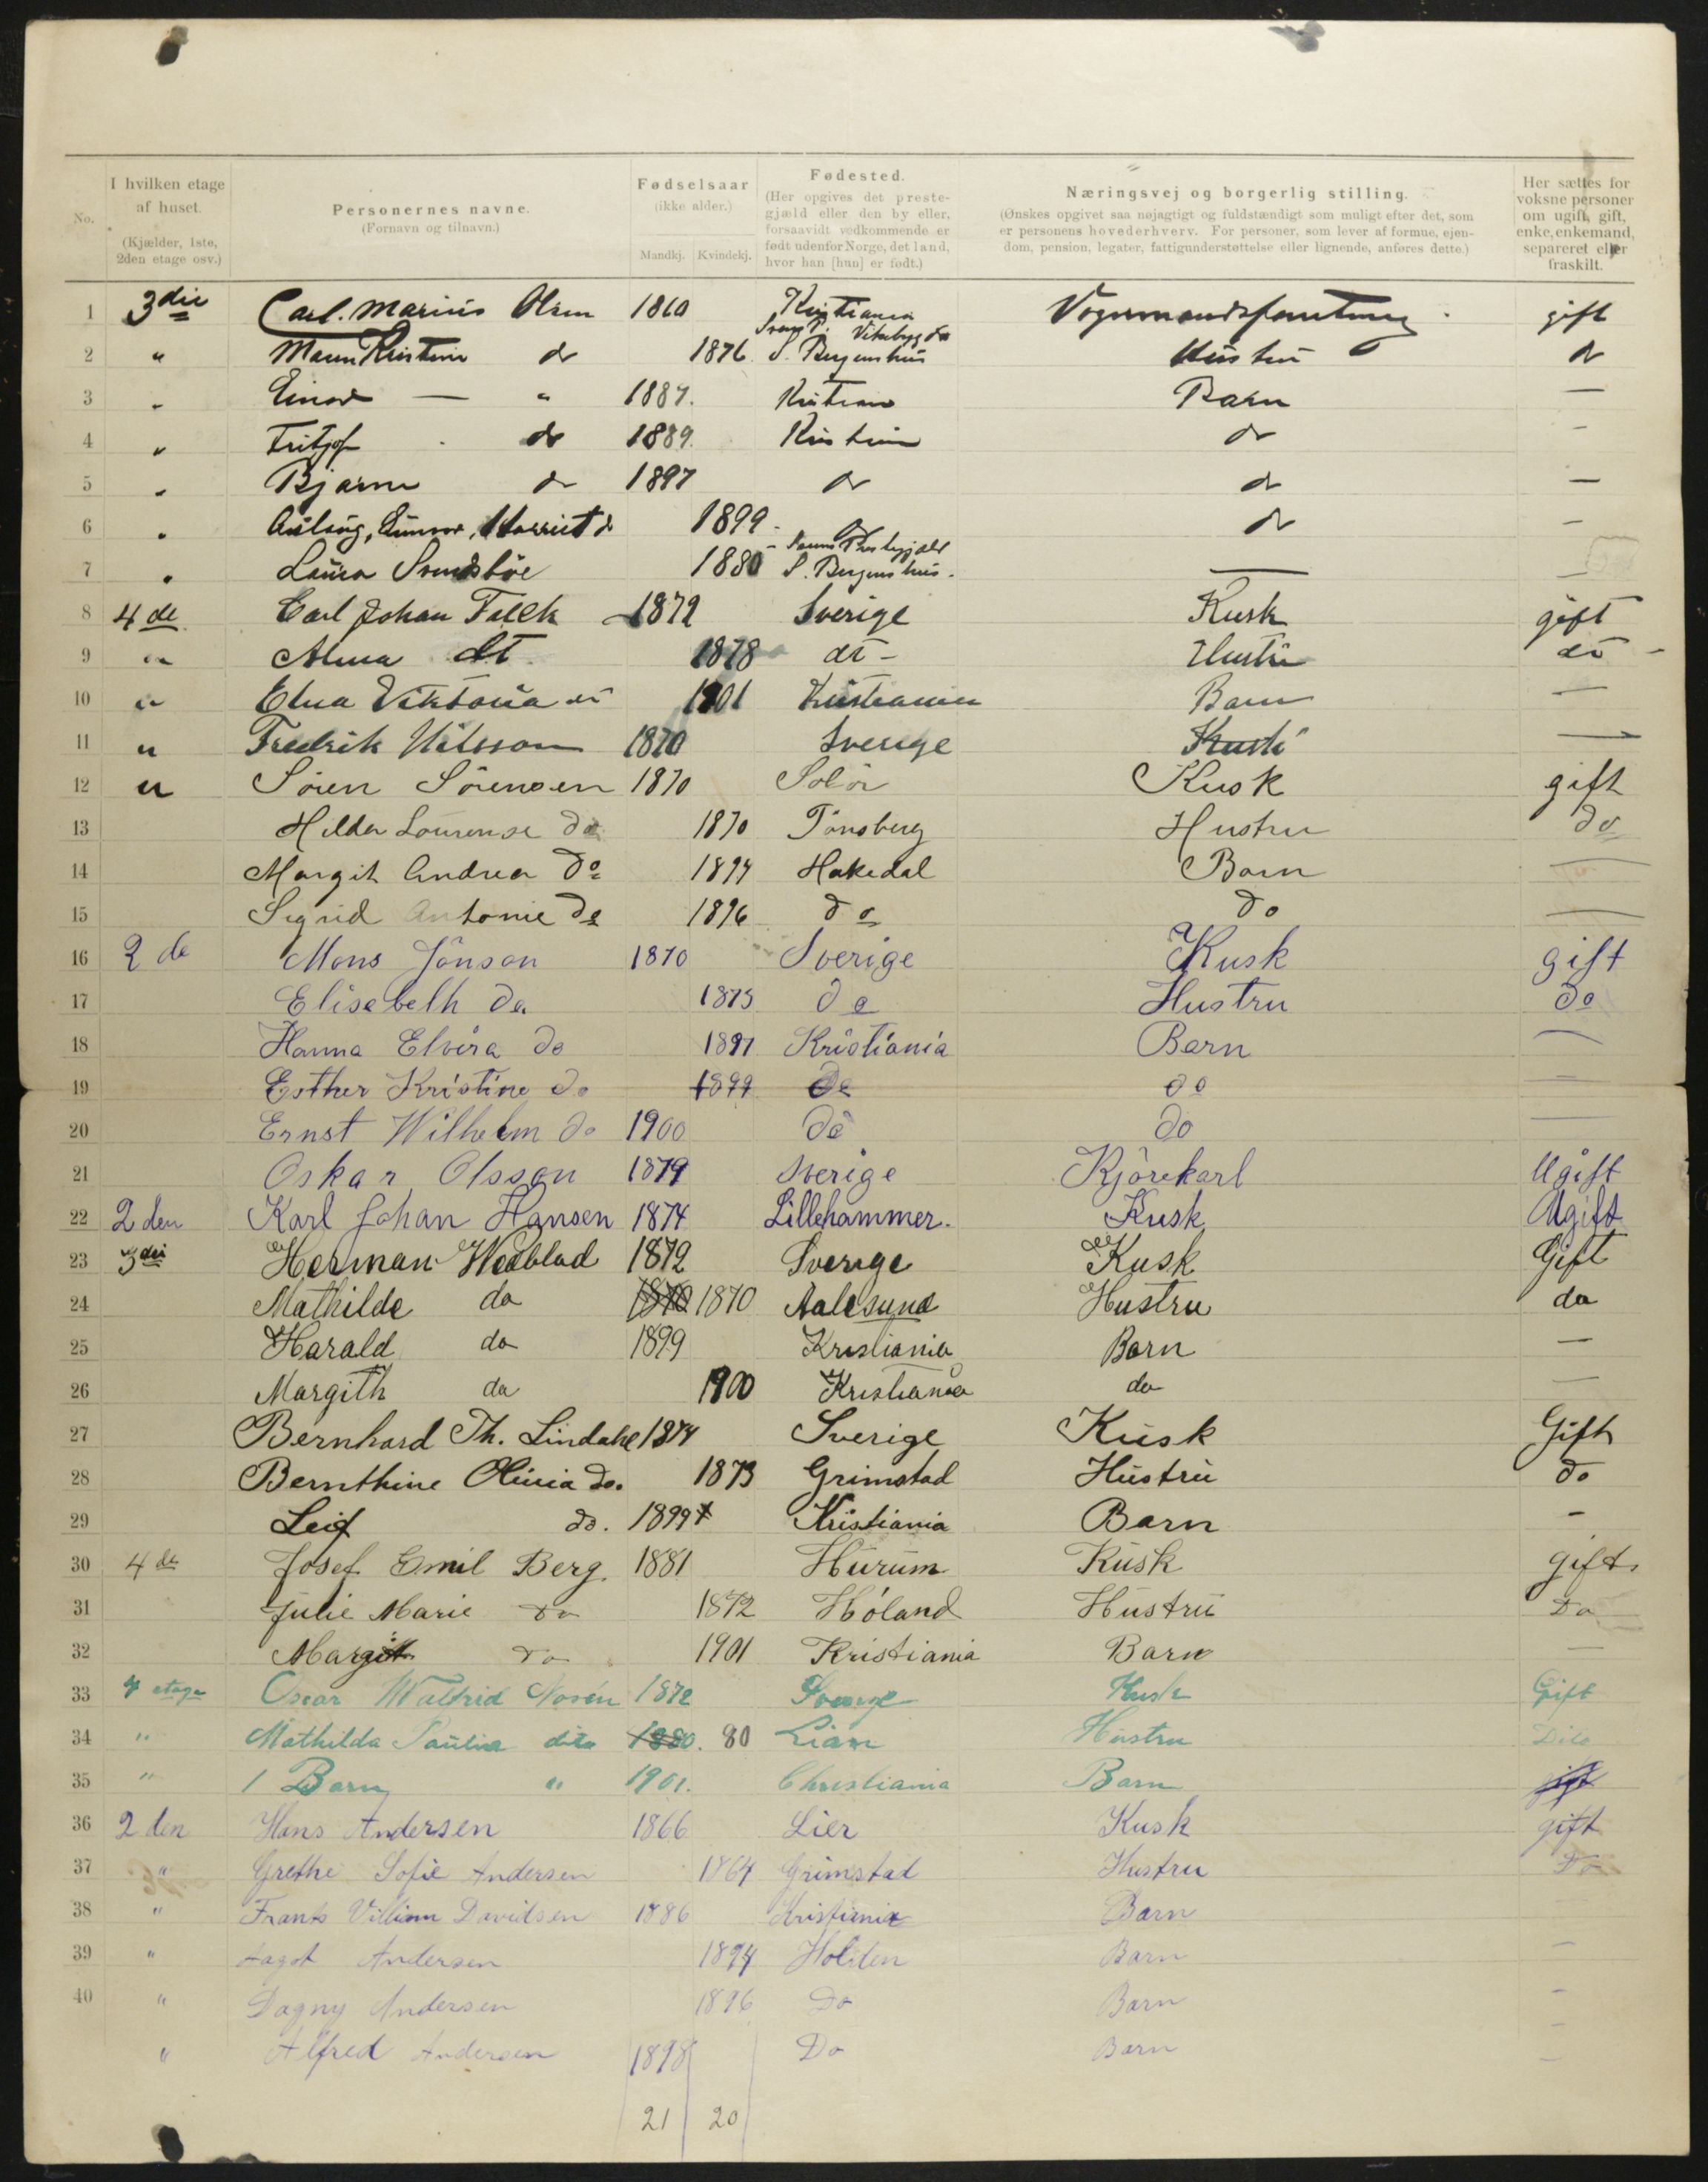 No.
I hvilken etage af huset. (Kjælder, 1ste, 2den etage osv.)
Personernes navne. (Fornavn og tilnavn.)
Fødselsaar (ikke alder.) Mandkj. Kvindekj.
Fødested. (Her opgives det prestegjæld eller den by eller, forsaavidt vedkommende er født udenfor Norge, det land, hvor han [hun] er født.)
Næringsvej og borgerlig stilling. (Ønskes opgivet saa nøjagtigt og fuldstændigt som muligt efter det, som er personens hovederhverv. For personer, som lever af formue, ejendom, pension, legater, fattigunderstøttelse eller lignende, anføres dette.)
Her sættes for voksne personer om ugift, gift, enke, enkemand, separeret eller fraskilt.
1 3die Carl. Marius Olsen 1860 Kristiania gift
2 " Maren Kristine do 1876 S. Bergenhus Hustru do
3 " Einar — " 1887. Kristiania Barn —
4 " Fritjof do 1889. Kristiania do -
5 " Bjarne do 1897 do do —
6 " Aslaug, Gunvor, Harriet do 1899 do do -
7 " Laura 1880 S. Bergenshus. —
8 4de Carl Johan Falck 1872 Sverige Kusk gift
9 " Alma dt 1878 dt - Hustru do -
10 " Elna Viktoria dt 1901 Kristiania Barn —
11 " Fredrik Nilsson 1870 Sverige Kusk —
12 " Søren Sørensen 1870 Solør Kusk gift
13 Hilda Lourense do 1870 Tønsberg Hustru do
14 Margit Andrea do 1894 Hakedal Barn —
15 Sigrid Antonie do 1896 do do —
16 2de Mons Jônson 1870 Sverige Kusk gift
17 Elisabeth do 1873 do Hustru do
18 Hanna Elvira do 1897 Kristiania Barn —
19 Esther Kristine do 1899 do do —
20 Ernst Wilhelm do 1900 do do —
21 Oskar Olsson 1879 Sverige Kjørekarl Ugift
22 2den Karl Johan Hansen 1874 Lillehammer. Kusk Ugift
23 3die Herman Wedblad 1872 Sverige Kusk Gift
24 Mathilde do 1870 1870 Aalesund Hustru do
25 Harald do 1899 Kristiania Barn —
26 Margith do 1900 Kristiania do —
27 Bernhard Th. Lindahl 1874 Sverige Kusk Gift
28 Bernthine Olivia do. 1873 Grimstad Hustru do
29 Leif do. 1899 Kristiania Barn -
30 4de Josef Emil Berg. 1881 Hurum Kusk gift.
31 Julie Marie Do 1872 Høland Hustru Do
32 Margit Do 1901 Kristiania Barn —
33 4 etage Oscar Walfrid Norén 1872 Sverige Kusk Gift
34 " Mathilda Paulina dito 1880. 80 Lian Hustru Dito
35 " 1 Barn " 1901. Christiania Barn gift
36 2den Hans Andersen 1866 Lier Kusk gift
37 " Grethe Sofie Andersen 1864 Grimstad Hustru Do
38 " Frants Villiam Davidsen 1886 Kristiania Barn -
39 " Andersen 1894 Holden Barn -
40 " Dagny Andersen 1896 Do Barn -
" Alfred Andersen 1898 Do Barn -
21 20